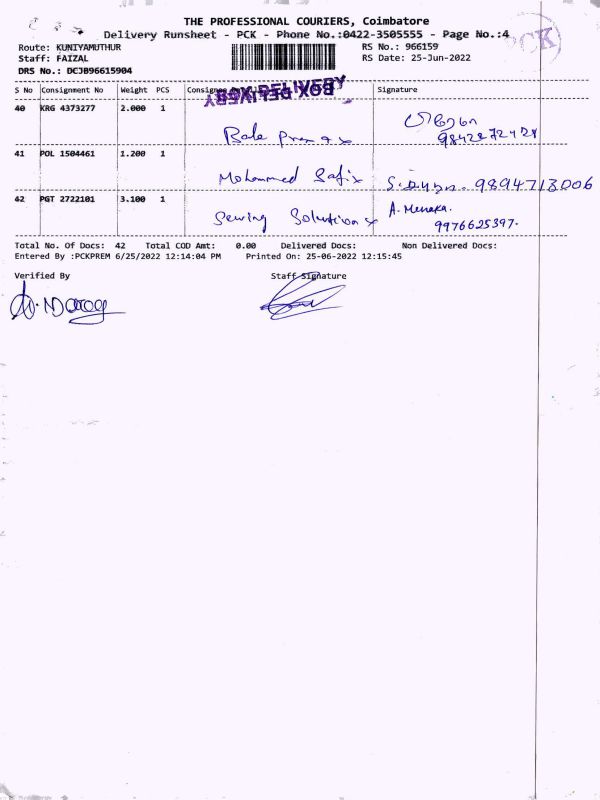 THE PROFESSIONAL COURIERS, Coimbatore
Delivery Runsheet - PCK - Phone No.:0422-3505555 - Page No.:4
PCK
Route: KUNIYAMUTHUR RS No.: 966159
Staff: FAIZAL RS Date: 25-Jun-2022
DRS No.: DCJB96615904
S No Consignment No Weight PCS Signature
BOX DELIVERY
40 KRG 4373277 2.000 1
Bala Prem
41 POL 1504461 1.200 1
Mohammed Safi 9894713006
42 PGT 2722101 3.100 1 A. Menaka.
Sewing Solution 9976625397.
Total No. Of Docs: 42 Total COD Amt: 0.00 Delivered Docs: Non Delivered Docs:
Entered By :PCKPREM 6/25/2022 12:14:04 PM Printed On: 25-06-2022 12:15:45
Verified By Staff Signature